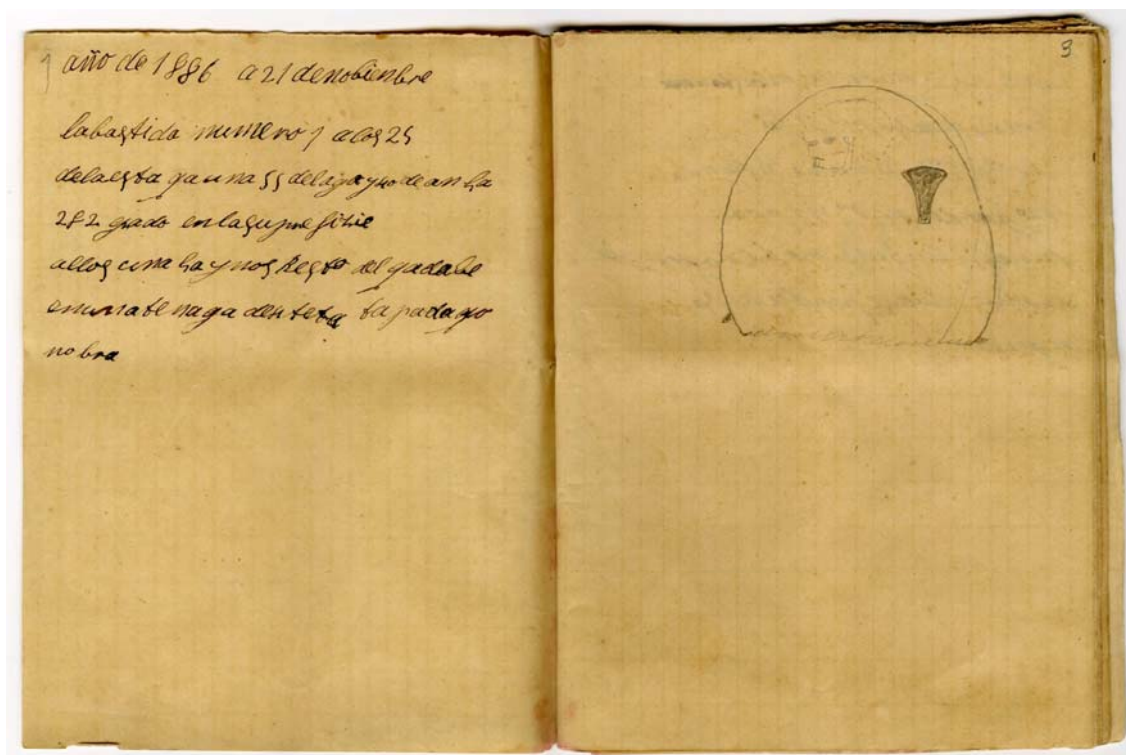 año de 1886 a 21 denobienbre
labastida numero 1 alos 25
delaesta gauna 55 delaga y 40 de an ha
282 grado enlasuprefisie
allos una ha y nos Resto del gadabe
enunatenaga denteta tapada yo
nobra
3